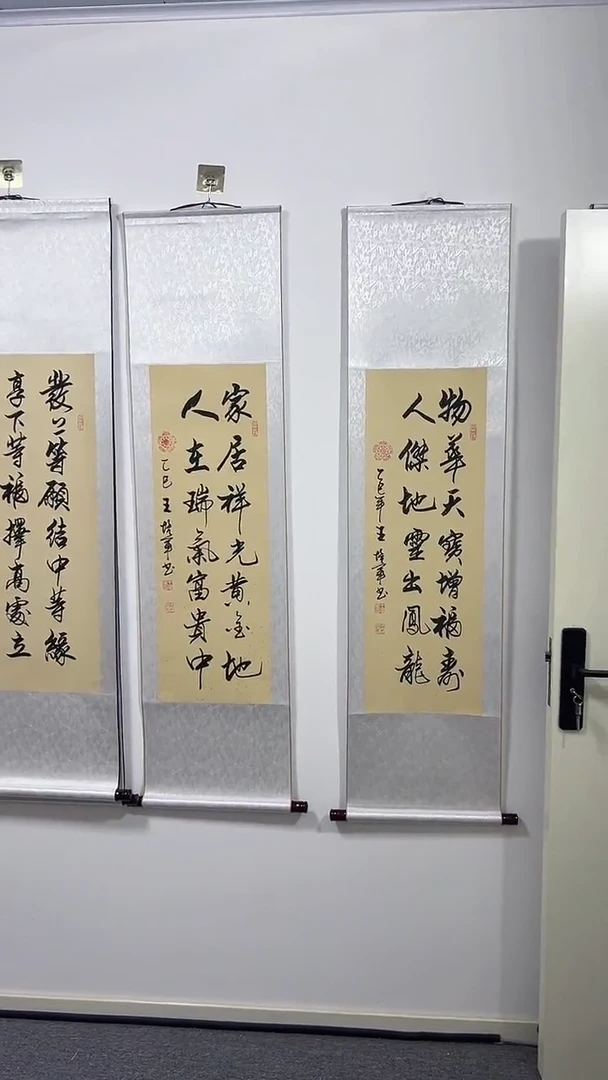 物華天寶增福壽
人傑地靈出鳳龍
乙巳年王培軍书
家居祥光黄金地
人在瑞氣富貴中
乙巳王培軍书
發上等願結中等緣
享下等福擇高處立